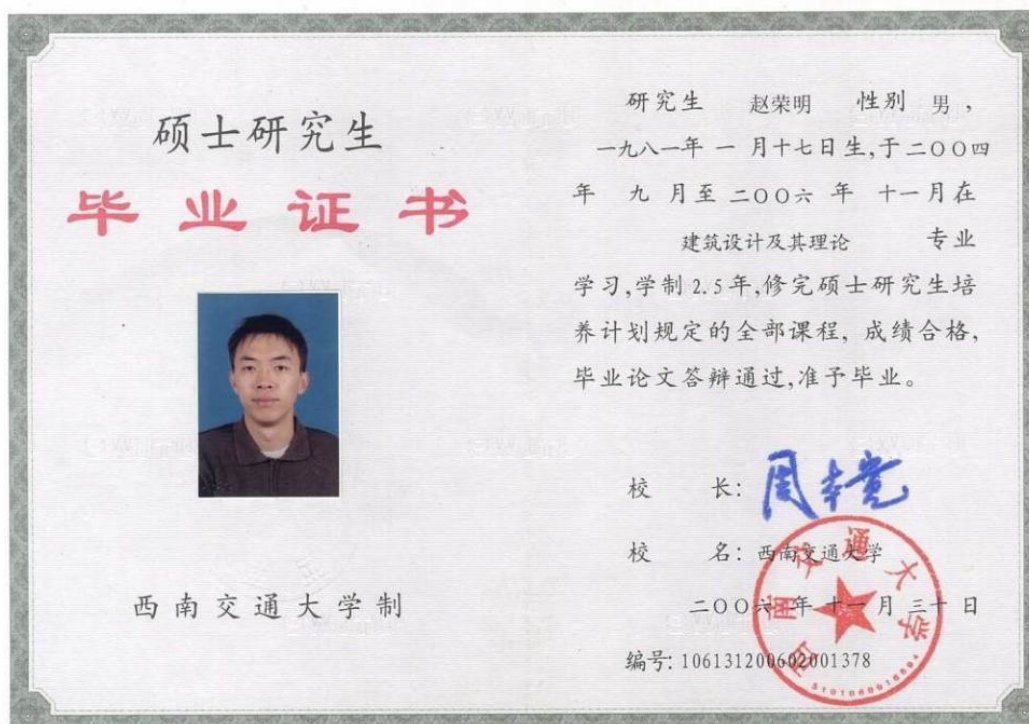 硕士研究生
毕业证书
西南交通大学制
研究生 赵荣明 性别 男,
一九八一年 一 月十七日生,于二〇〇四
年 九 月至 二〇〇六 年 十一月在
建筑设计及其理论 专业
学习,学制2.5年,修完硕士研究生培
养计划规定的全部课程, 成绩合格,
毕业论文答辩通过,准予毕业。
校 长: 周本宽
校 名: 西南交通大学
二〇〇六 年 十一 月 三十 日
编号: 106131200602001378
西南交通大学